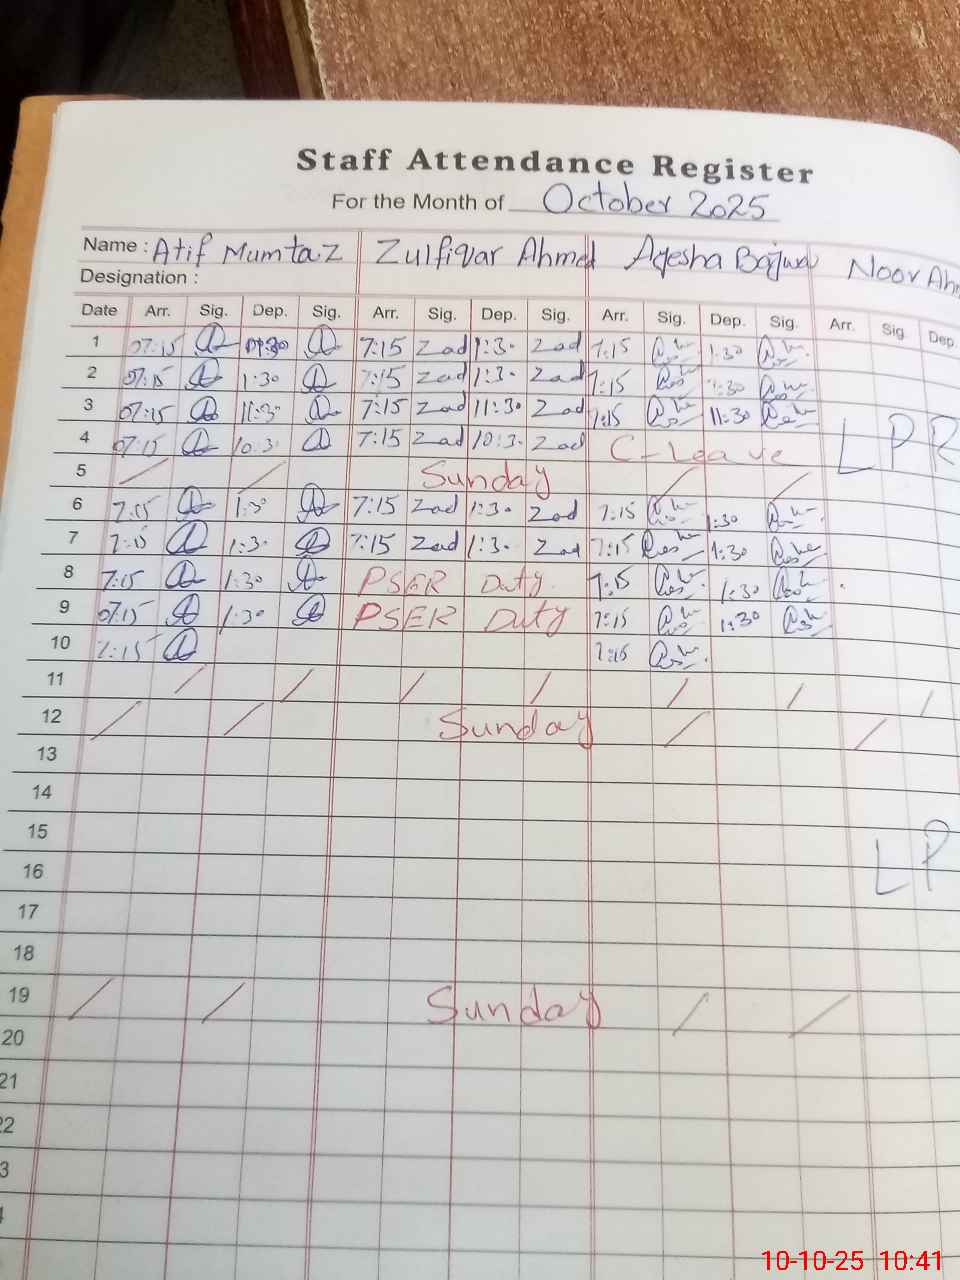 Staff Attendance Register
For the Month of October 2025
Name : Atif Mumtaz Zulfiqar Ahmed Ayesha Bajwa Noor Ah
Designation :
Date Arr. Sig. Dep. Sig. Arr. Sig. Dep. Sig. Arr. Sig. Dep. Sig. Arr. Sig. Dep.
1 07:15 7:15 Zad 1:30 Zad 7:15 1:30
2 07:15 1:30 7:15 Zad 1:30 Zad 7:15 1:30
3 07:15 11:30 7:15 Zad 11:30 Zad 7:15 11:30
4 07:15 10:30 7:15 Zad 10:30 Zad C-Leave LPR
5 Sunday
6 7:15 1:30 7:15 Zad 1:30 Zad 7:15 1:30
7 7:15 1:30 7:15 Zad 1:30 Zad 7:15 1:30
8 7:15 1:30 PSER Duty 7:15 1:30
9 07:15 1:30 PSER Duty 7:15 1:30
10 7:15 7:15
11
12 Sunday
13
14
15
16 LP
17
18
19 Sunday
20
21
22
3
10-10-25 10:41